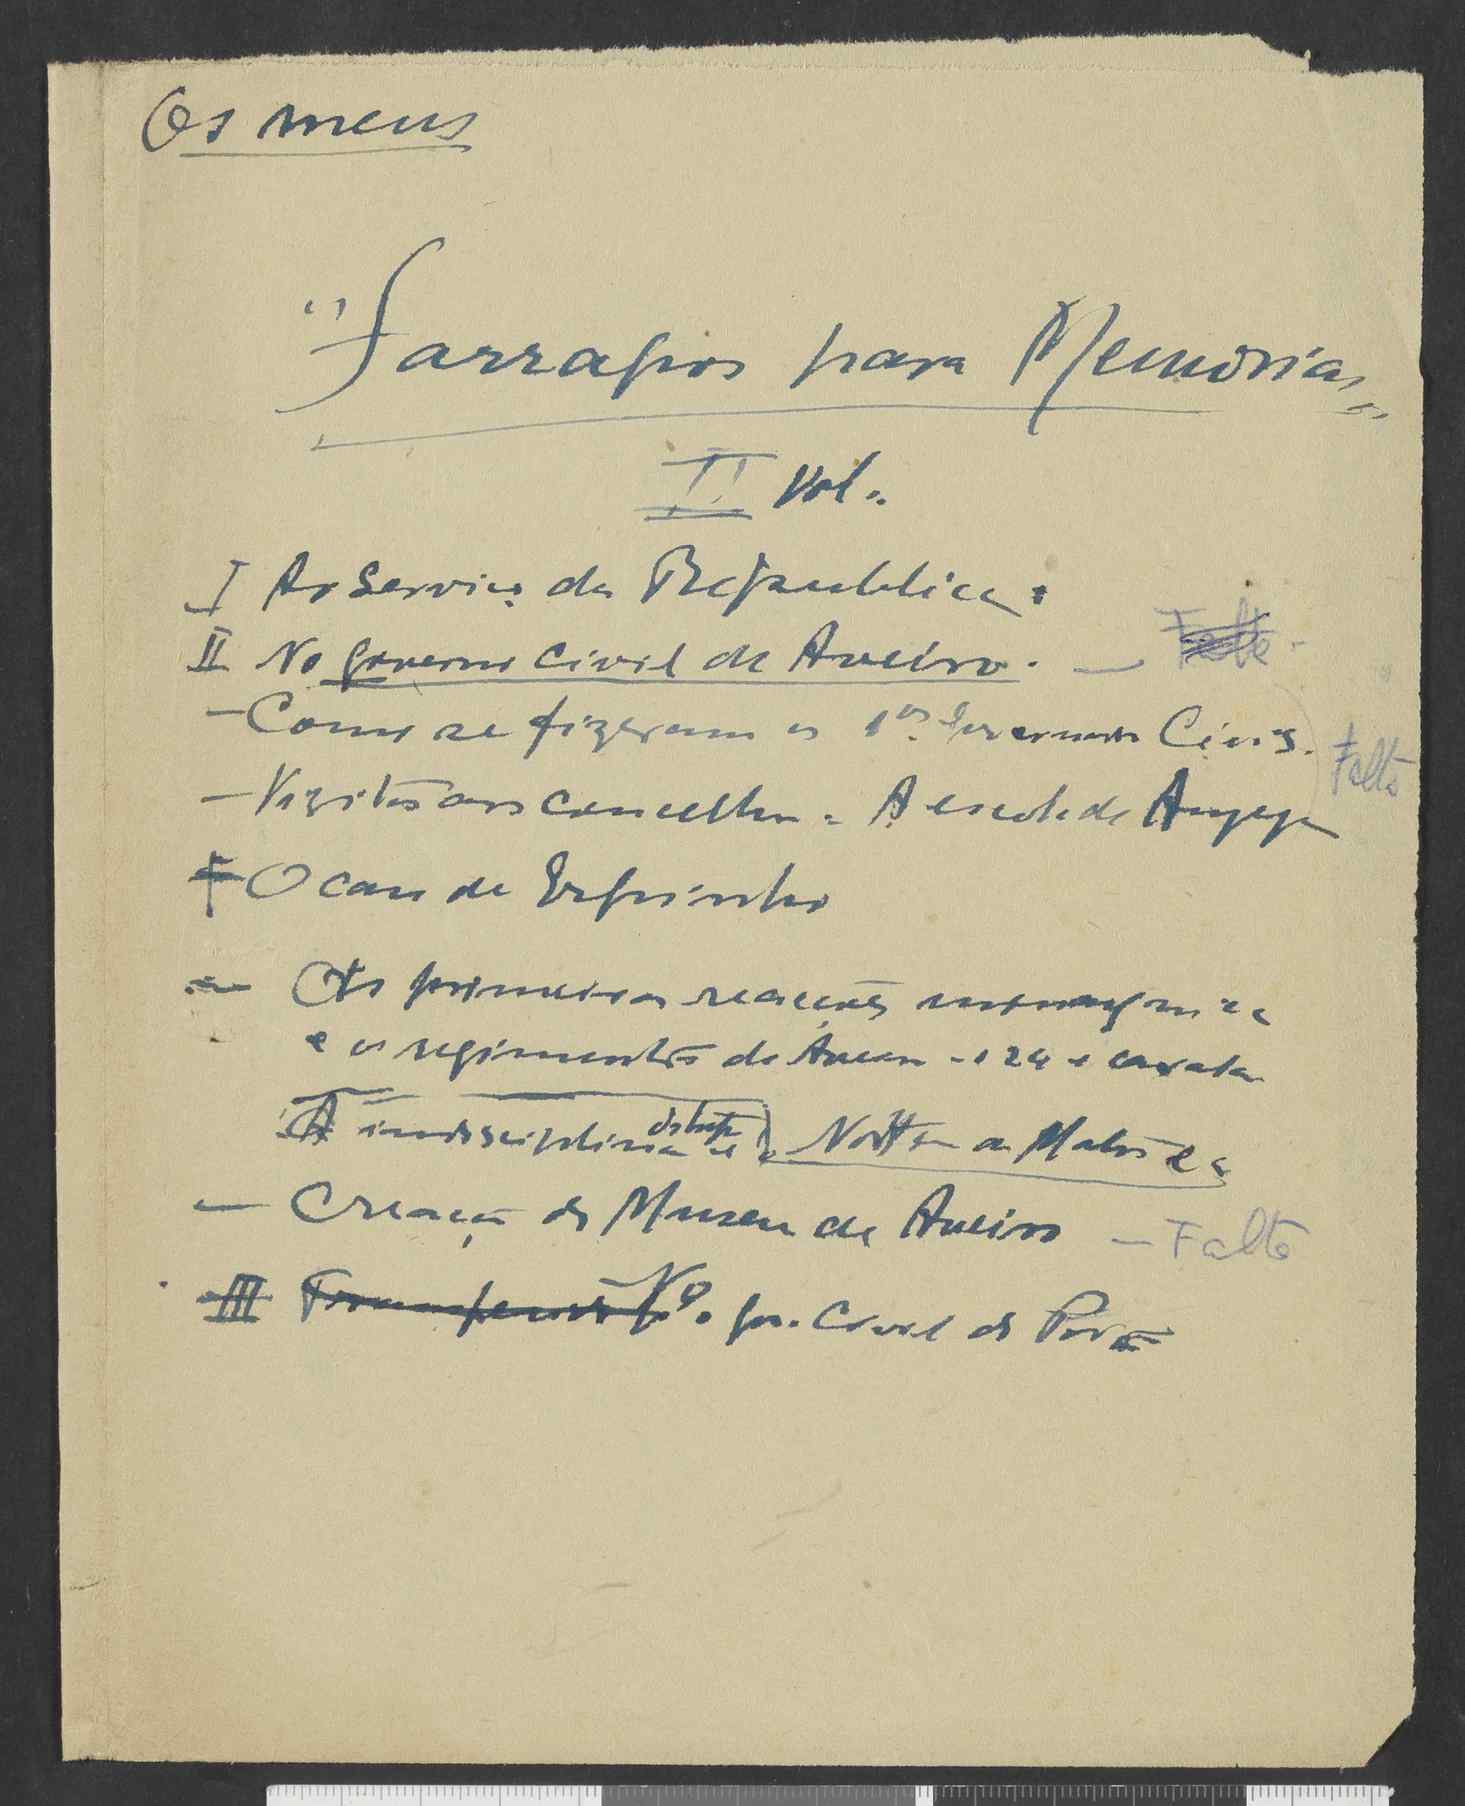 Os meus
"Farrapos para Memorias"
II Vol.
I Ao Serviço da Republica.
II No Governo Civil de Aveiro. — Falta
— Como se fizeram os 1os Governos Civis.
Falta
— Vizitas aos concelhos. A escola de Angeja
— O caso de Espinho
— As primeiras reacções monarquica
e os regimentos de Aveiro - o 24 e cavala
A indisciplina das tropas e a Norton de Matos
— Creação do Museu de Aveiro — Falta
III No gov. Civil do Porto